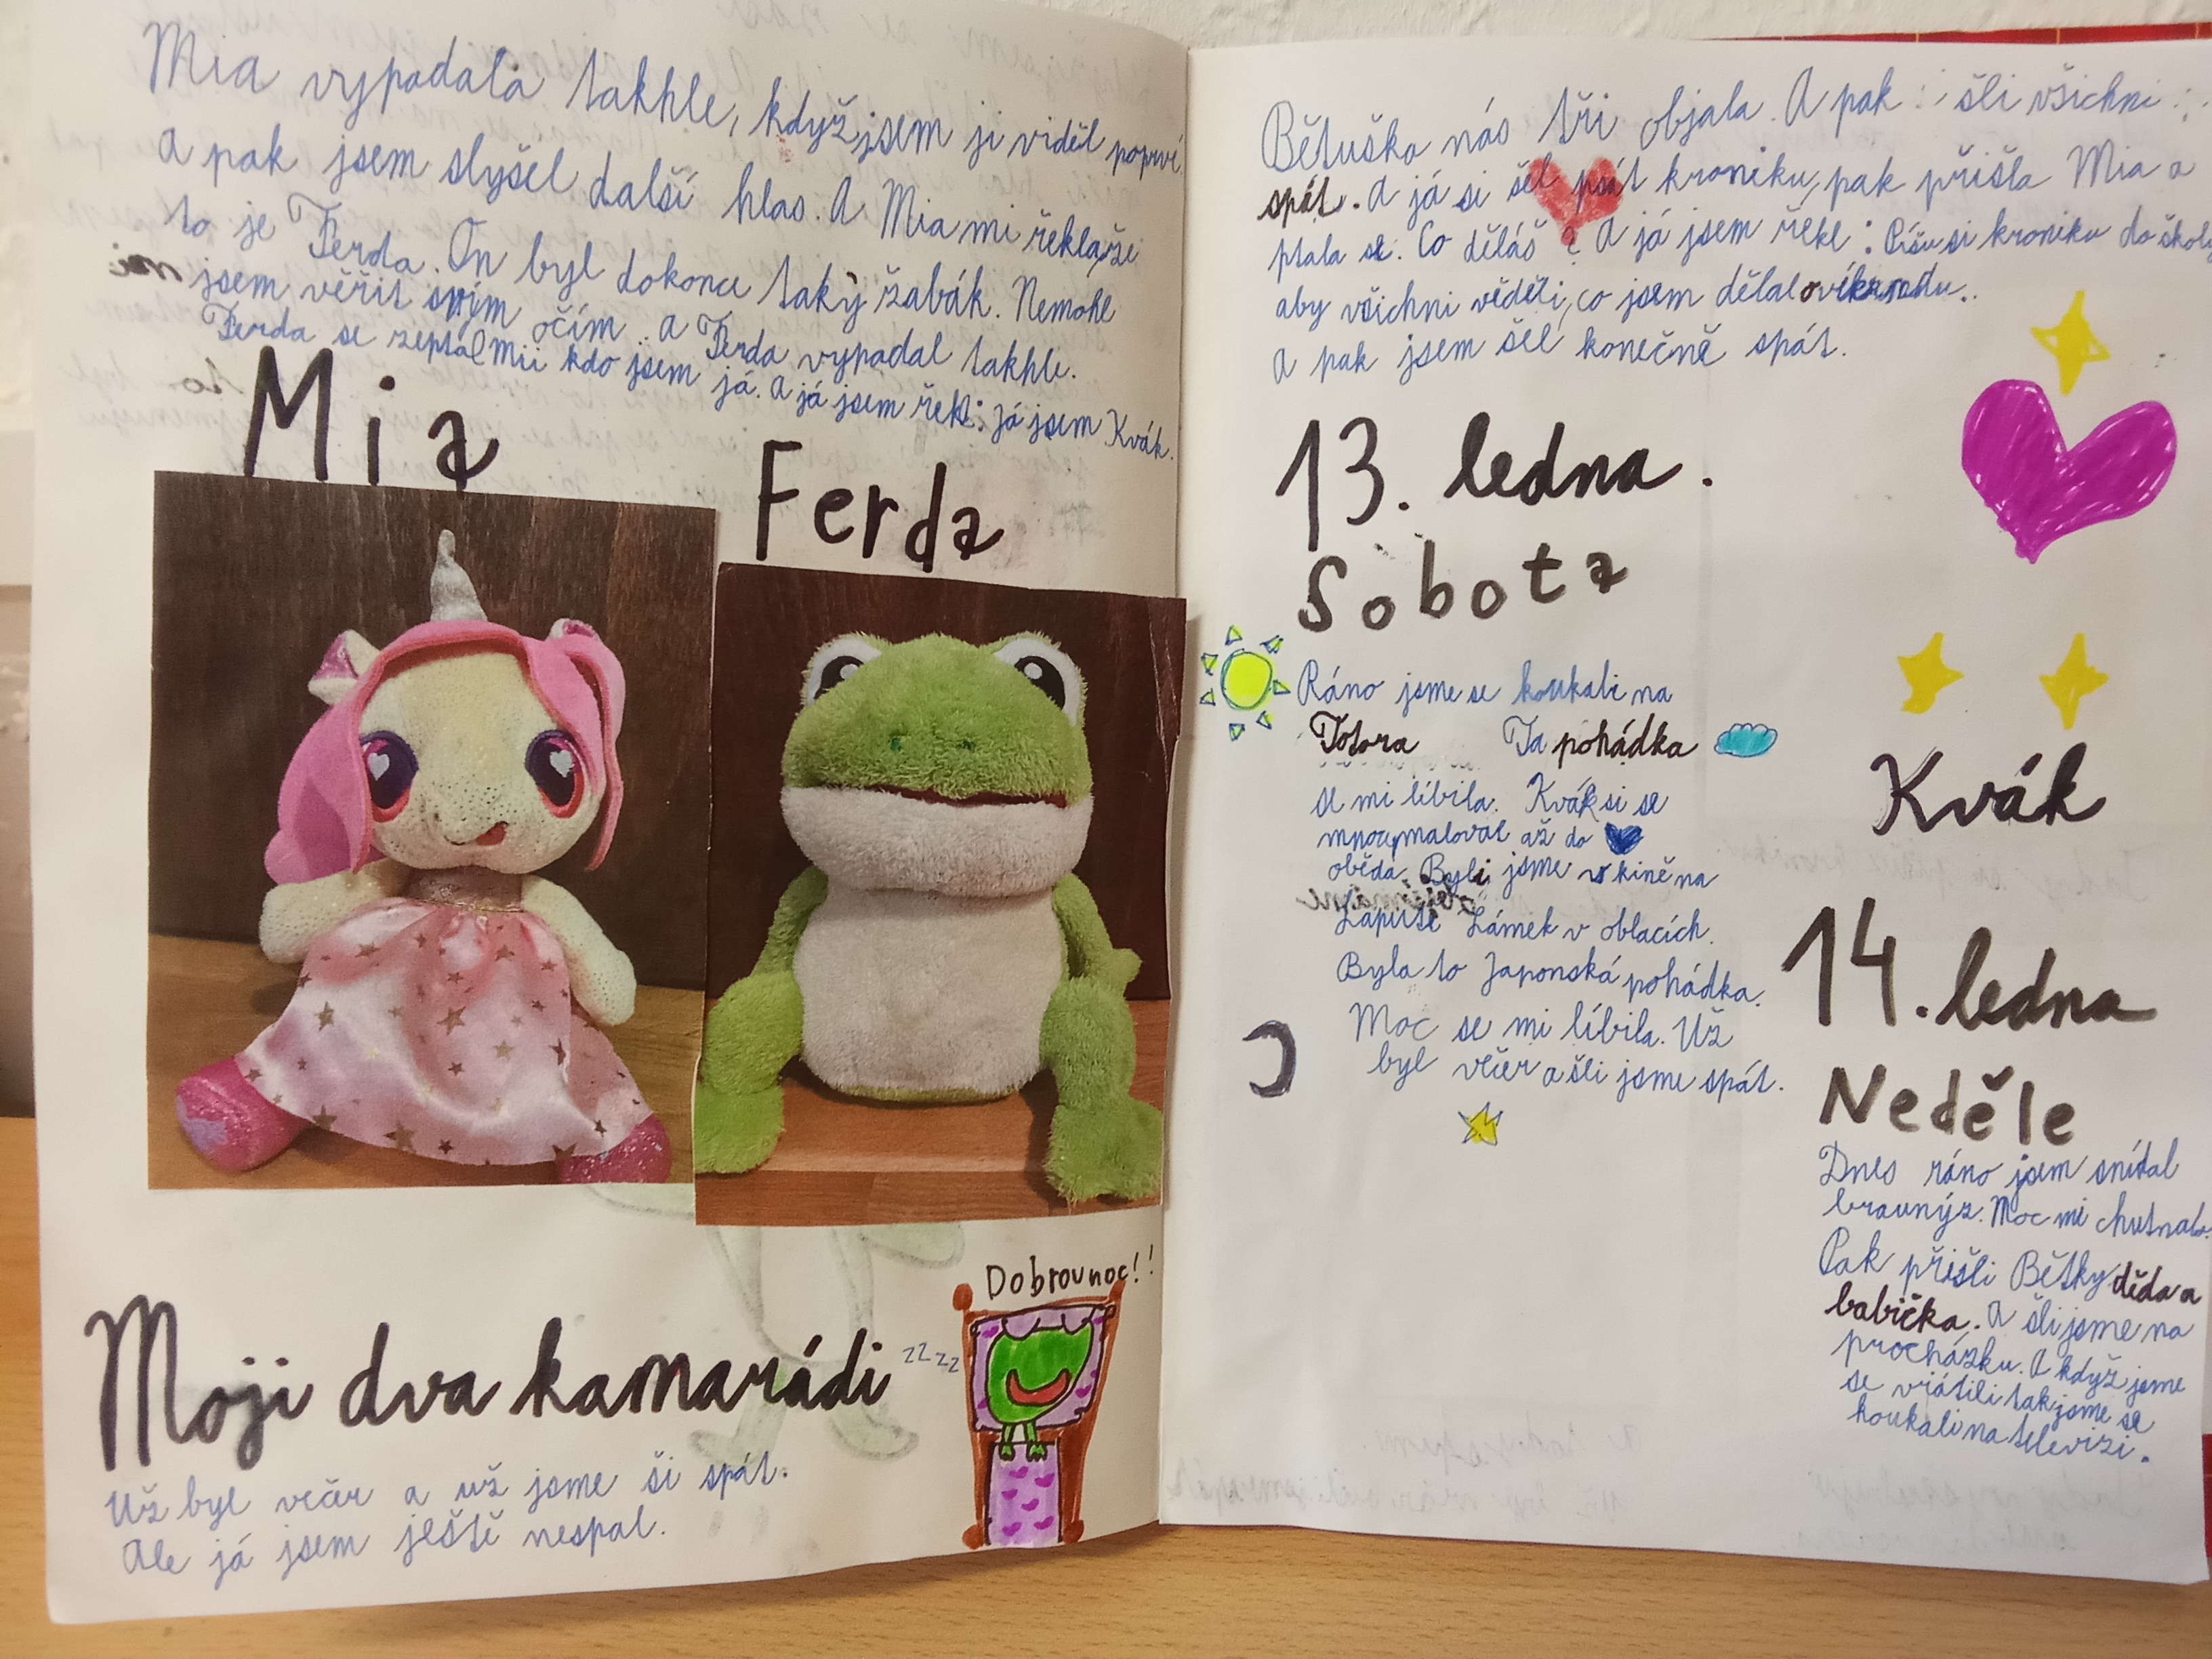 Mia vypadala takhle, když jsem ji viděl poprvé
a pak jsem slyšel další hlas. A Mia mi řekla, že
to je Ferda. On byl dokonce taky žabák. Nemohl
jsem věřit svým očím. a Ferda vypadal takhle.
Ferda se zeptal Mii kdo jsem já. A já jsem řekl: Já jsem Kvák.
Mia
Ferda
Moji dva kamarádi
zzzz
Dobrou noc!!
Už byl večer a už jsme ši spát.
Ale já jsem ještě nespal.
Bětuška nás tři objala. A pak šli všichni
spát. A já si šel psát kroniku, pak přišla Mia a
ptala se. Co děláš? A já jsem řekl: Píšu si kroniku do školy
aby všichni věděli, co jsem dělal o víkendu.
A pak jsem šel konečně spát.
13. ledna.
Sobota
Ráno jsme se koukali na
Totora Ta pohádka
se mi líbila. Kvák si se
mnou maloval až do
oběda. Byli jsme v kině na
Laputě Zámek v oblacích.
Byla to Japonská pohádka.
Moc se mi líbila. Už
byl večer a šli jsme spát.
Kvák
14. ledna
Neděle
Dnes ráno jsem snídal
braunýz. Moc mi chutnalo.
Pak přišli Bětky děda a
babička. A šli jsme na
procházku. A když jsme
se vrátili tak jsme se
koukali na televizi.